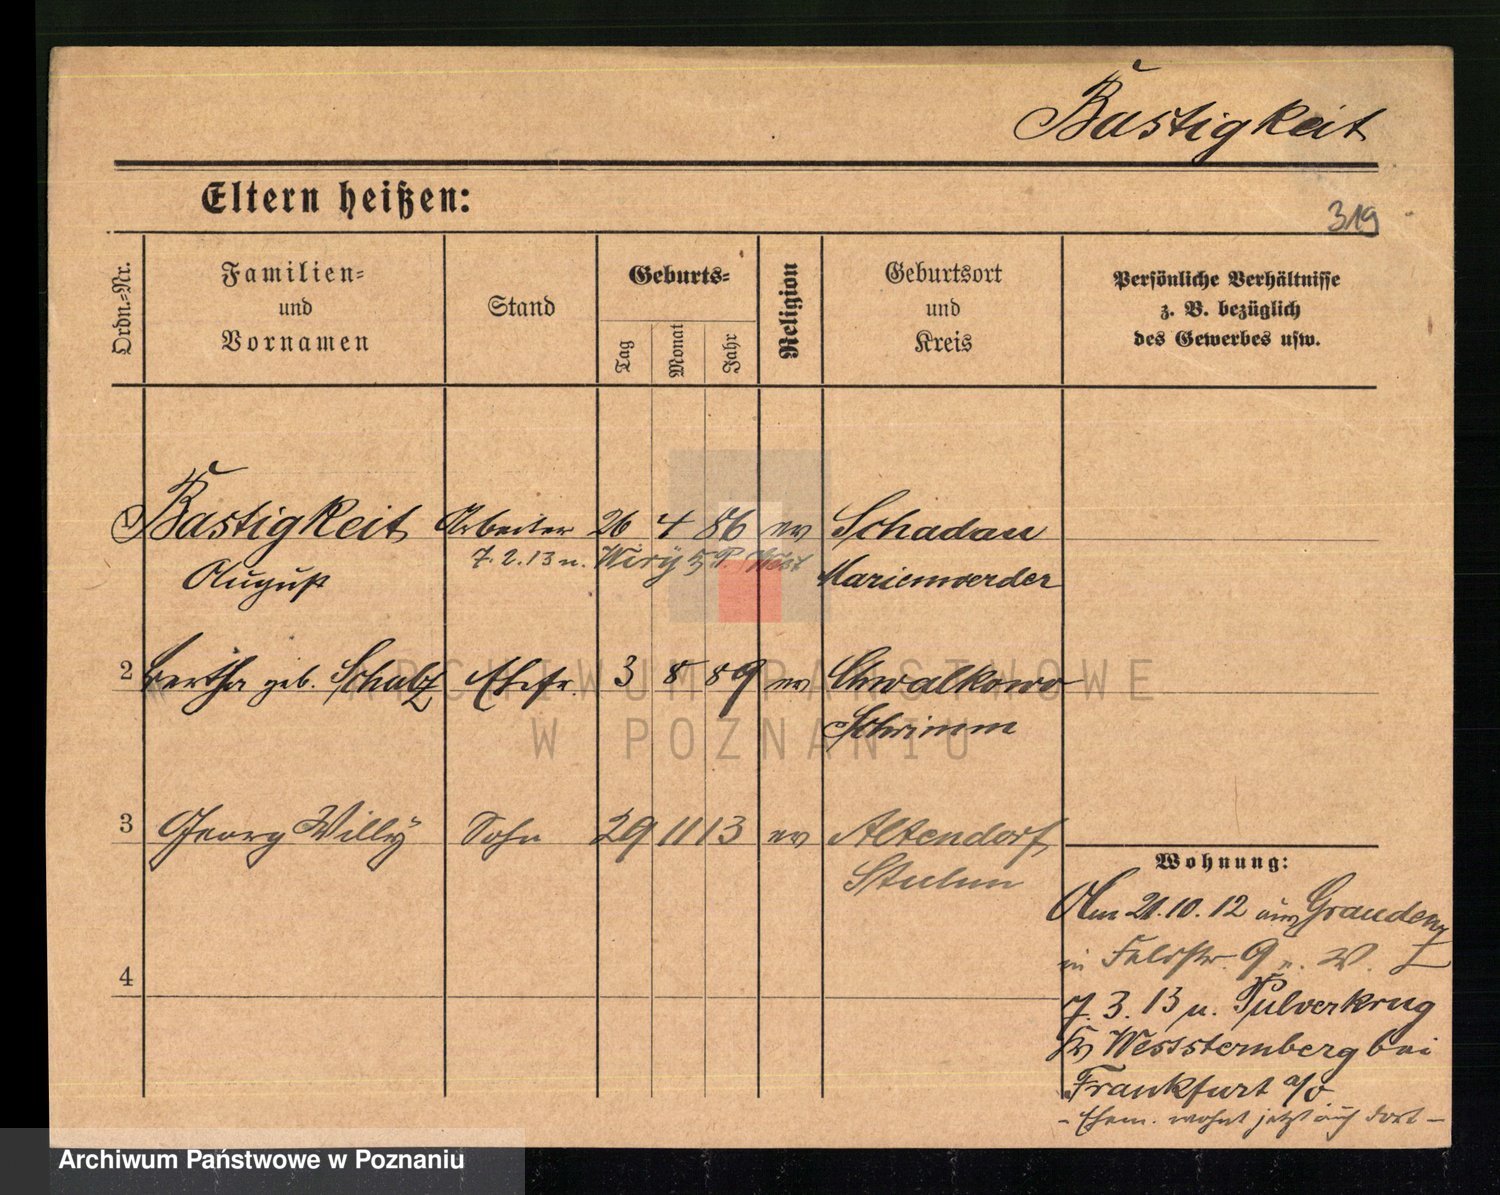 Bastigkeit
Eltern heißen:
319
Ordn.-Nr.
Familien-
und
Vornamen
Stand
Geburts-
Tag
Monat
Jahr
Religion
Geburtsort
und
Kreis
Persönliche Verhältnisse
z. B. bezüglich
des Gewerbes usw.
1 Bastigkeit Arbeiter 26 4 86 ev Schadau
7.2.13 n.
August Marienwerder
2 Bertha geb. Schulz Ehefr. 3 8 89 ev Chwalkowo
Schrimm
3 Georg Willy Sohn 29 11 13 ev Altendorf
Stuhm
4
Wohnung:
Am 21.10.12 aus Graudenz
in Feldstr. 9
7.3.13 n. Pulverkrug
Kr Weststernberg bei
Frankfurt a/o
- Ehem. wohnt jetzt auch dort -
ARCHIWUM PAŃSTWOWE
W POZNANIU
Archiwum Państwowe w Poznaniu